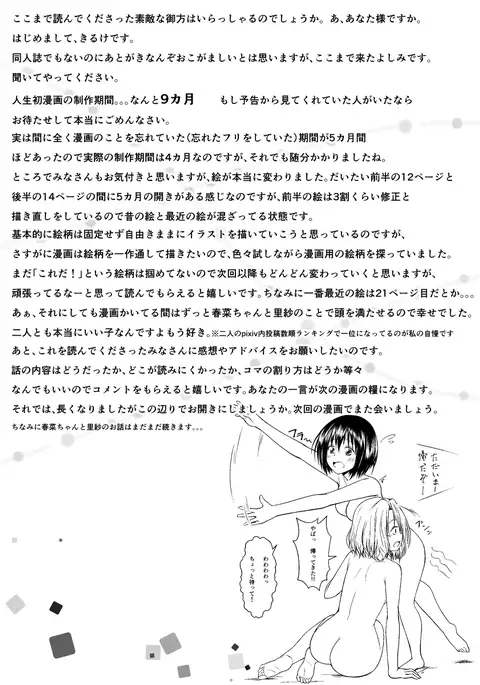 ここまで読んでくださった素敵な御方はいらっしゃるのでしょうか。あ、あなた様ですか。
はじめまして、きるけです。
同人誌でもないのにあとがきなんぞおこがましいとは思いますが、ここまで来たよしみです。
聞いてやってください。
人生初漫画の制作期間。。。なんと9カ月 もし予告から見てくれていた人がいたなら
お待たせして本当にごめんなさい。
実は間に全く漫画のことを忘れていた(忘れたフリをしていた)期間が5カ月間
ほどあったので実際の制作期間は4カ月なのですが、それでも随分かかりましたね。
ところでみなさんもお気付きと思いますが、絵が本当に変わりました。だいたい前半の12ページと
後半の14ページの間に5カ月の開きがある感じなのですが、前半の絵は3割くらい修正と
描き直しをしているので昔の絵と最近の絵が混ざってる状態です。
基本的に絵柄は固定せず自由きままにイラストを描いていこうと思っているのですが、
さすがに漫画は絵柄を一作通して描きたいので、色々試しながら漫画用の絵柄を探っていました。
まだ「これだ！」という絵柄は掴めてないので次回以降もどんどん変わっていくと思いますが、
頑張ってるなーと思って読んでもらえると嬉しいです。ちなみに一番最近の絵は21ページ目だとか。。。
あぁ、それにしても漫画かいてる間はずっと春菜ちゃんと里紗のことで頭を満たせるので幸せでした。
二人とも本当にいい子なんですよもう好き。※二人のpixiv内投稿数順ランキングで一位になってるのが私の自慢です
あと、これを読んでくださったみなさんに感想やアドバイスをお願いしたいのです。
話の内容はどうだったか、どこが読みにくかったか、コマの割り方はどうか等々
なんでもいいのでコメントをもらえると嬉しいです。あなたの一言が次の漫画の糧になります。
それでは、長くなりましたがこの辺りでお開きにしましょうか。次回の漫画でまた会いましょう。
ちなみに春菜ちゃんと里紗のお話はまだまだ続きます。。。
ただいまー
俺だぞー
ブンッ
やばっ 帰ってきた!!!
わわわわっ
ちょっと待って！